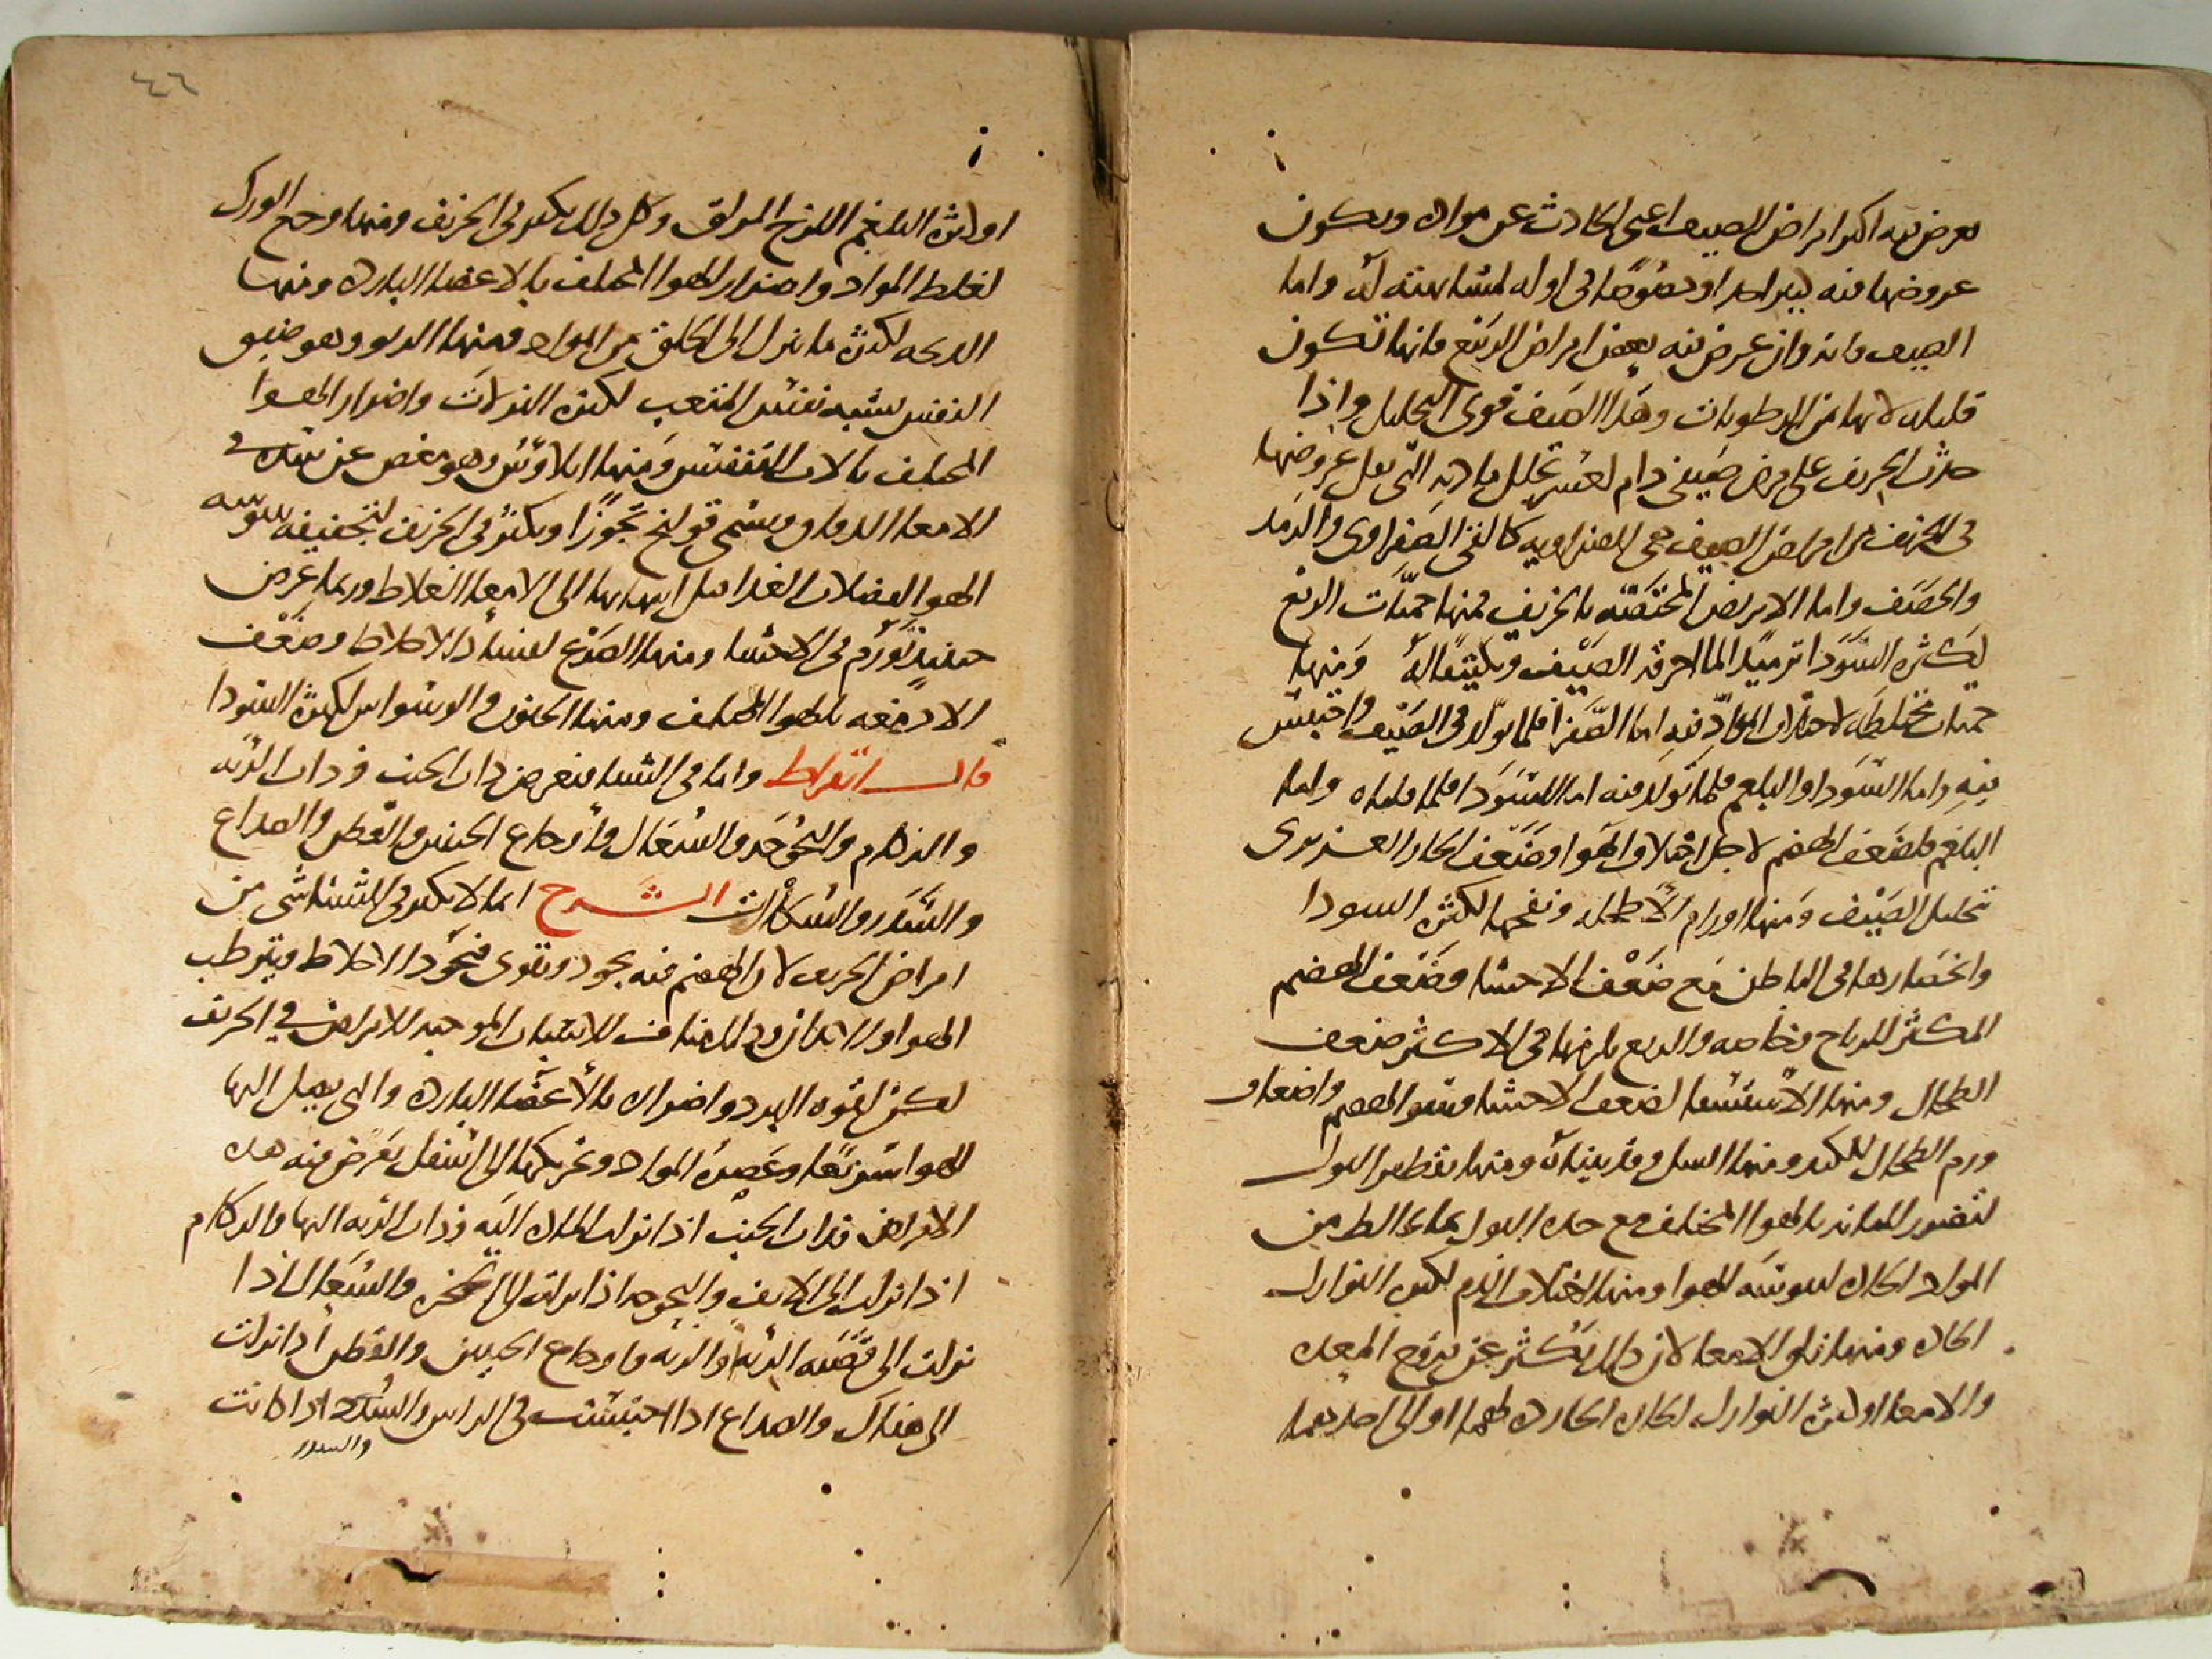 يعرض فيه اكثر امراض الصيف اعني الحادث عن مواده ويكون
عروضها فيه كثيرا وخصوصًا في اوله لمشابهته له واما
الصيف فانه وان عرض فيه بعض امراض الربيع فانها تكون
قليله لانها من الرطوبات وهذا الصيف قوي التحليل واذا
حدث الخريف على مرض صيفي دام لعسر تحلل مادته التي يقل عروضها
في الخريف من امراض الصيف هي الصفراويه كالقي الصفراوي والرمد
والحصف واما الامراض المختصه بالخريف فمنها حميات الربع
لكثره السودا ترميدًا لما احرقه الصيف وتكثيفًا له ومنها
حميات مختلطه لاختلاف المواد فيه اما الصفرا فلما تولد في الصيف واحتبس
فيه واما السودا والبلغم فلما تولد فيه اما السودا فلما قلناه واما
البلغم فلضعف الهضم لاجل اختلاف الهوا وضعف الحار الغريزي
تحليل الصيف ومنها اورام الاطحله ونفخها لكثره السودا
وانحصارها في الباطن مع ضعف الاحشا وضعف الهضم
المكثر للرياح وخاصه والربع يلزمها في الاكثر ضعف
الطحال ومنها الاستسقا لضعف الاحشا وسو الهضم واضعاف
ورم الطحال للكبد ومنها السل وقد بيناه ومنها تقطير البول
لتضرر المثانه بالهوا المختلف مع حده البول بما يخالطه من
المواد الحاده ليبوسه الهوا ومنها اختلاف الدم لكثره النوازل
الحاده ومنها زلق الامعا لان ذلك يكثر عن قروح المعده
والامعا او لكثره النوازل الحاده الحارده لهما او الى احدهما
٤٦
او لكثره البلغم اللزج المزلق وكل ذلك يكثر في الخريف ومنها وجع الورك
لغلظ المواد واضرار الهوا المختلف بالاعضا البارده ومنها
الذبحه لكثره ما ينزل الى الحلق من المواد ومنها الربو وهو ضيق
النفس يشبه نفس المتعب لكثره النزلات واضرار الهوا
المختلف بالات التنفس ومنها ايلاوس وهو مغص عن شده في
الامعا الدقاق ويسمى قولنج تجوزًا ويكثر في الخريف لتجفيفه بيبوسه
الهوا لفضلات الغدا قبل انتهايها الى الامعا الغلاظ وربما عرض
حينيذ تورم في الاحشا ومنها الصرع لفساد الاخلاط وضعف
الادمغه بالهوا المختلف ومنها الجنون والوسواس لكثره السودا
قال ابقراط واما في الشتا فيعرض ذات الجنب وذات الريه
والزكام والبحوحه والسعال واوجاع الجنبين والقطن والصداع
والسدر والسكات الشرح انما لا يكثر في الشتا شي من
امراض الخريف لان الهضم فيه يجود ويقوى فتجود الاخلاط ويترطب
الهوا والابدان وذلك مناف للاسباب الموجبه للامراض في الخريف
لكن لقوه البرد واضراره بالاعضا البارده والتي يصل اليها
الهوا سريعًا وعصره المواد وتحريكها الى اسفل يعرض فيه هذه
الامراض فذات الجنب اذا نزلت الماده اليه وذات الريه اليها والزكام
اذا نزلت الى الانف والبحوحه اذا نزلت الى الحنجره والسعال اذا
نزلت الى قصبه الريه او الريه واوجاع الجنبين والقطن اذا نزلت
الى هناك والصداع اذا احتبست في الراس والسكته اذا كانت
والسدر